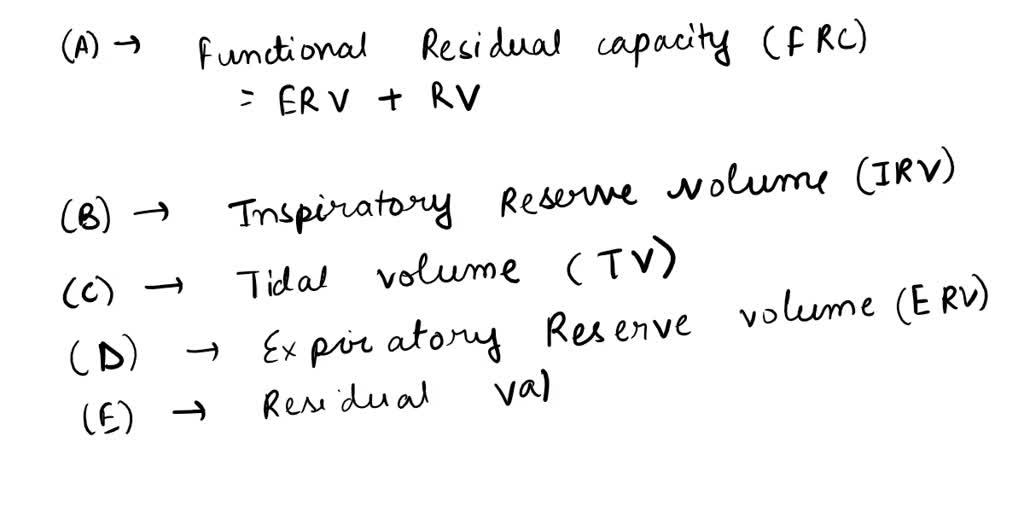 (A) → Functional Residual capacity (FRC)
= ERV + RV
(B) → Inspiratory Reserve volume (IRV)
(C) → Tidal volume (TV)
(D) → Expiratory Reserve volume (ERV)
(E) → Residual val